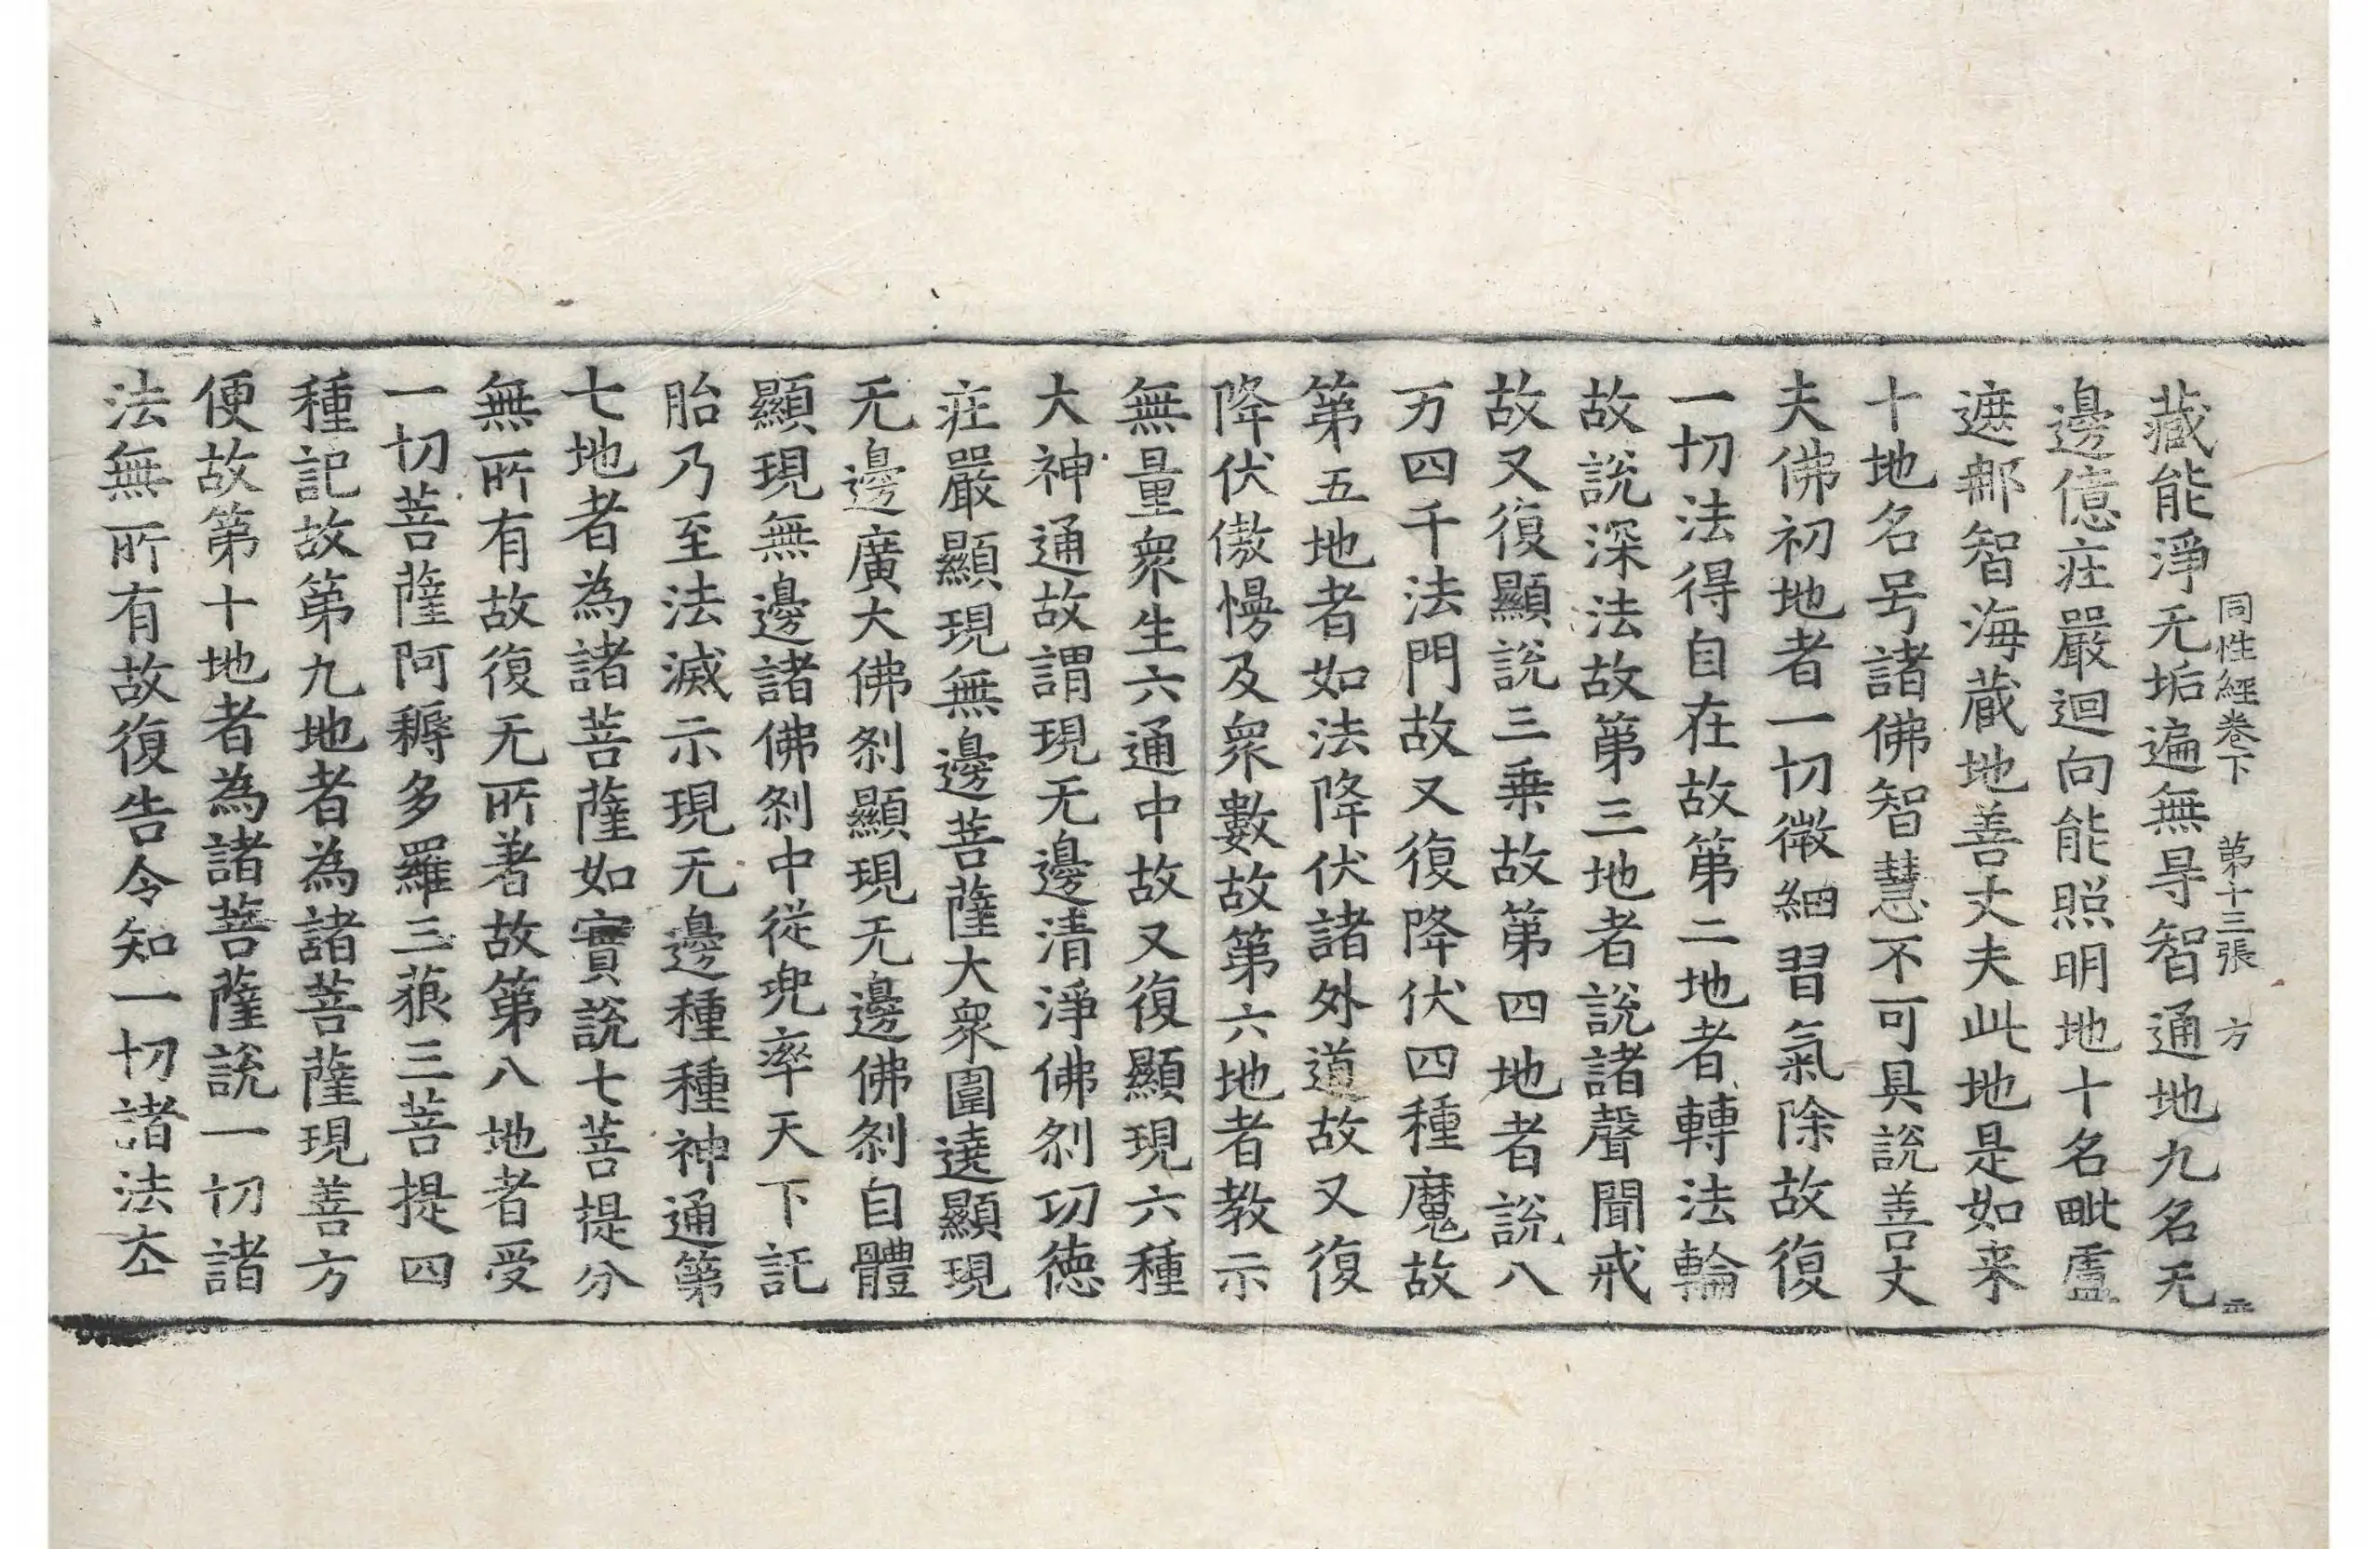 同性經卷下 第十三張 方
藏能淨无垢遍無㝵智通地九名无
邊億庄嚴迴向能照明地十名毗盧
遮那智海蔵地善丈夫此地是如来
十地名号諸佛智慧不可具說善丈
夫佛初地者一切微細習氣除故復
一切法得自在故第二地者轉法輪
故說深法故第三地者說諸聲聞戒
故又復顯說三乗故第四地者說八
万四千法門故又復降伏四種魔故
第五地者如法降伏諸外道故又復
降伏傲慢及衆數故第六地者教示
無量衆生六通中故又復顯現六種
大神通故謂現无邊清淨佛刹功徳
庄嚴顯現無邊菩薩大衆圍遶顯現
无邊廣大佛刹顯現无邊佛刹自體
顯現無邊諸佛刹中從兜率天下託
胎乃至法滅示現无邊種種神通第
七地者為諸菩薩如實說七菩提分
無所有故復无所著故第八地者受
一切菩薩阿耨多羅三藐三菩提四
種記故第九地者為諸菩薩現善方
便故第十地者為諸菩薩說一切諸
法無所有故復告令知一切諸法夲